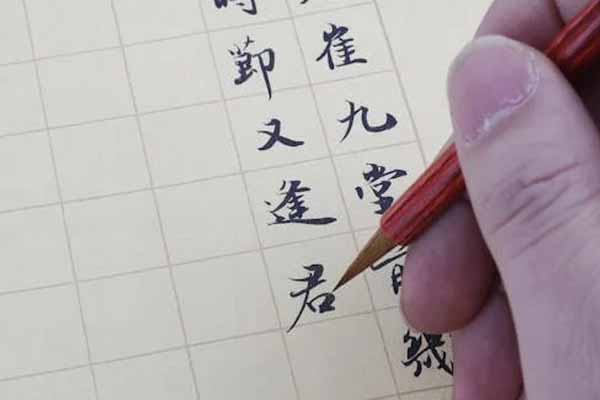 崔九堂前幾
時節又逢君